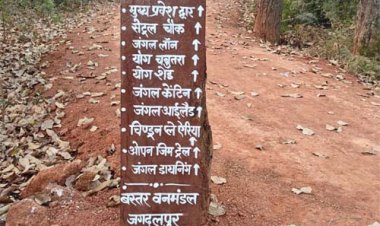 मुख्य प्रवेश द्वार ↑
सेंट्रल चौक ↑
जंगल लॉन ↑
योग चबुतरा ↑
योग शेड ↑
जंगल केंटिन ↑
जंगल आईलैंड ↑
चिल्ड्रन प्ले ऐरिया ↑
ओपन जिम ट्रेल ↑
जंगल डायनिंग ↑
बस्तर वनमंडल
जगदलपुर